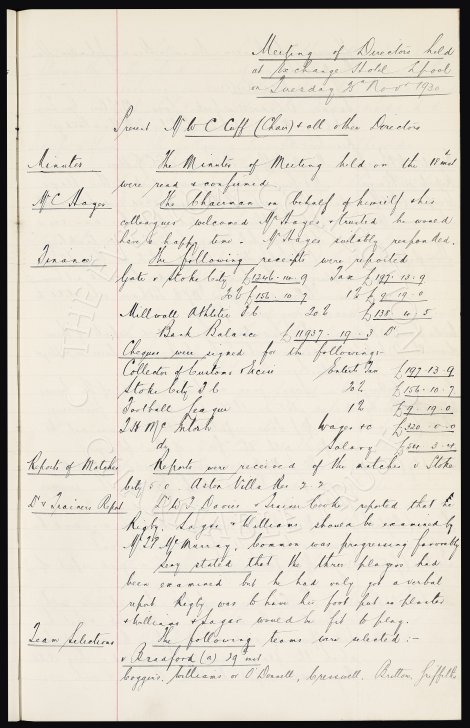 Meeting of Directors held
at Exchange Hotel L'pool
on Tuesday 25th Novr 1930
Present Mr W C Cuff (Chair) & all other Directors
Minutes The Minutes of Meeting held on the 18th inst
were read & confirmed.
Mr C Hayes The Chairman on behalf of himself & his
colleagues welcomed Mr Hayes & trusted he would
have a happy time. Mr Hayes suitably responded.
Finance The following receipts were reported
Gate v Stoke City £1246-10-9 Tax £197-13-9
20% £156-10-7 1% £9-19-0
Millwall Athletic F C 20% £138
Bank Balance £11937-19-3 Dr
Cheques were signed for the followings-
Collector of Customs & Excise Entert Tax £197-13-9
Stoke City F C 20% £156-10-7
Football League 1% £9-19-0
T H McIntosh Wages &c £320-0-0
do Salary
Reports of Matches Reports were received of the matches v Stoke
City 5-0. Aston Villa Res 2-2
Dr & Trainers Report Dr D J Davies & Trainer Cooke reported that
Rigby, Sagar & Williams should be examined by
Mr McMurray, Common was progressing favourably
stated that the three players had
been examined but he had only got a verbal
report. Rigby was to have his foot put in plaster
& Williams & Sagar would be fit to play.
Team Selections The following teams were selected:-
v Bradford (a) 29th inst
Coggins, Williams or O'Donnell, Cresswell, Britton, Griffiths